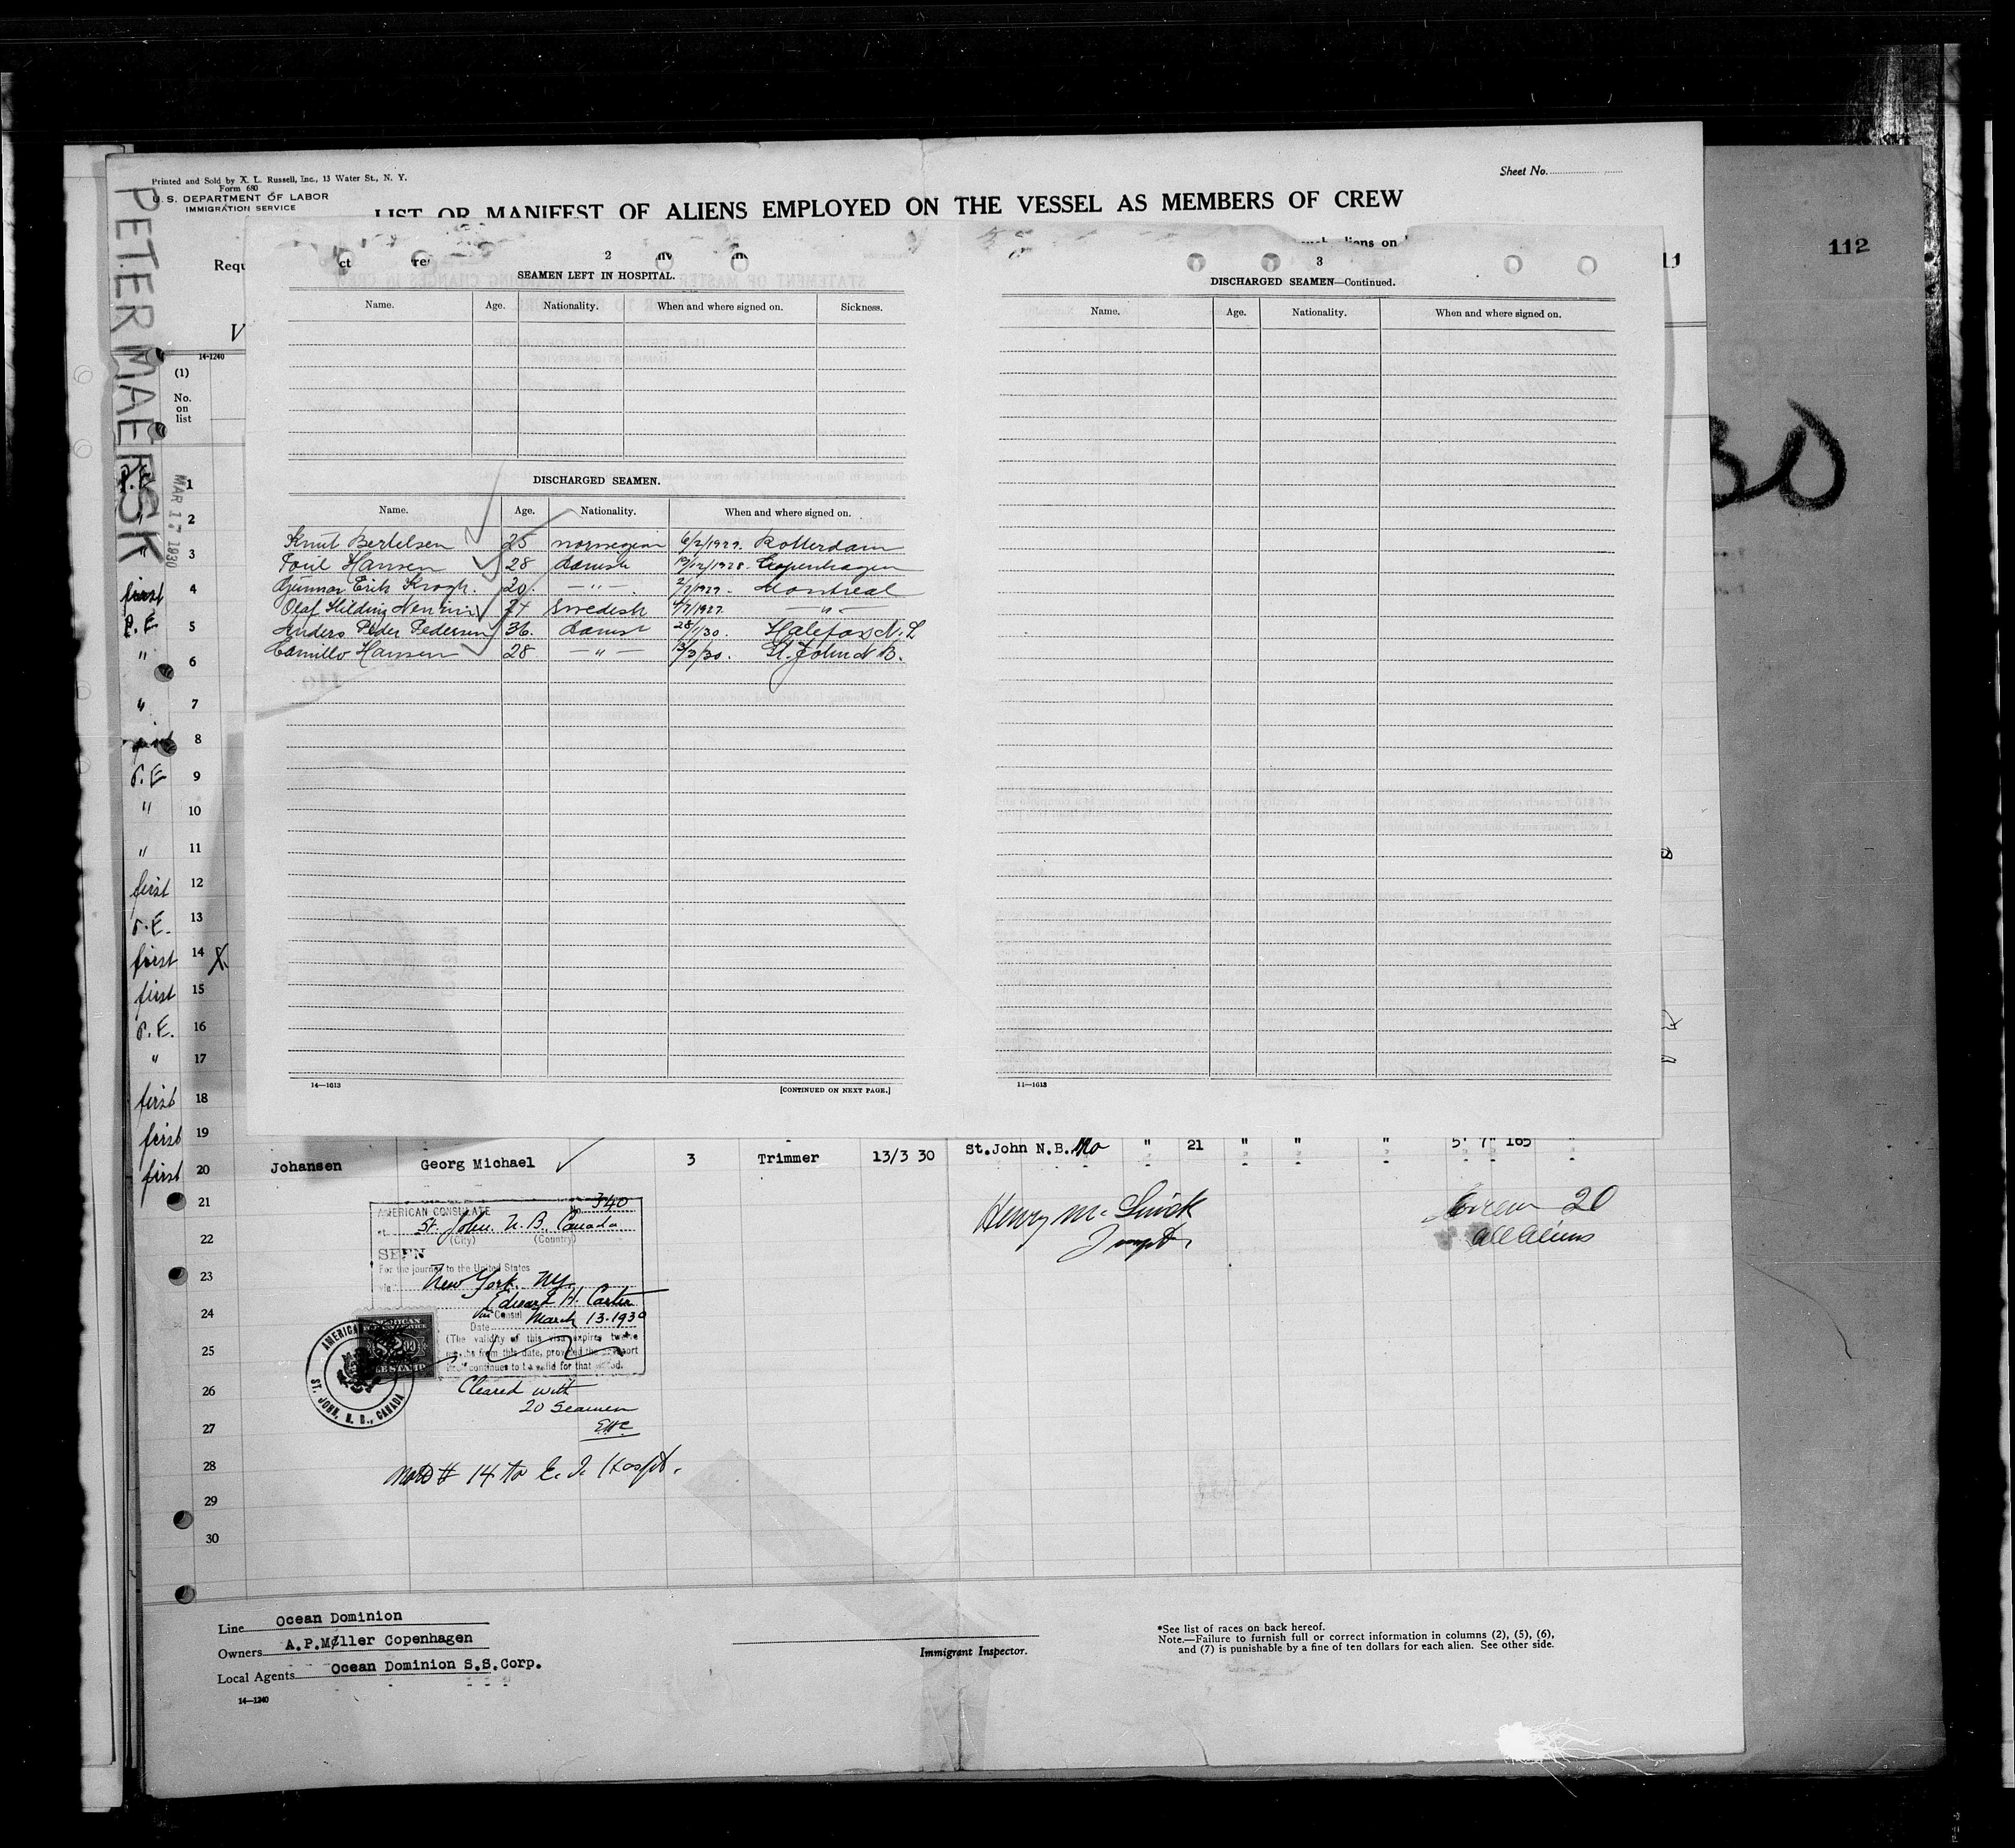 Printed and Sold by A. L. Russell, Inc., 13 Water St., N. Y.
Form 680
U. S. DEPARTMENT OF LABOR
IMMIGRATION SERVICE
Sheet No.
LIST OR MANIFEST OF ALIENS EMPLOYED ON THE VESSEL AS MEMBERS OF CREW
PETER MAERSK
MAR 17 1930
112
30
Requ
14-1240
(1)
No.
on
list
2
SEAMEN LEFT IN HOSPITAL.
Name. Age. Nationality. When and where signed on. Sickness.
DISCHARGED SEAMEN.
Name. Age. Nationality. When and where signed on.
Knut Bertelsen 25 norwegian 6/2/1929. Rotterdam
Poul Hansen 28 danish 19/12/1928. Copenhagen
Gunnar Erik Krogh. 20. — " — 2/7/1929. Montreal
Olaf Hilding 24 Swedish 4/7/1929. — " —
Anders Peder Pedersen 36. danish 28/1/30. Halefax N. S
Camillo Hansen 28 — " — 13/3/30. St. John N B.
14—1613
[CONTINUED ON NEXT PAGE.]
3
DISCHARGED SEAMEN—Continued.
Name. Age. Nationality. When and where signed on.
14—1613
P.E 1
" 2
" 3
first 4
P.E 5
" 6
" 7
first 8
P.E 9
" 10
" 11
first 12
P.E. 13
first 14 X
first 15
P.E. 16
" 17
first 18
first 19
St.John N.B. No " 21 " " " 5' 7" 165 "
first 20 Johansen Georg Michael 3 Trimmer 13/3 30
21
22
23
24
25
26
27
28
29
30
AMERICAN CONSULATE No. 340
at St. John. N. B. Canada
(City) (Country)
SEEN
For the journey to the United States
via New York. NY.
Edward H. Carter
Vice Consul
Date March 13. 1930
(The validity of this visa expires twelve
months from this date, provided the passport
continues to be valid for that period.
AMERICAN
ST. JOHN, N. B., CANADA
Cleared with
20 Seamen
EHC
Note # 14 to E. I. Hospt.
Henry Mc
Inspt.
Crew 20
all aliens
Line Ocean Dominion
Owners A.P.Møller Copenhagen
Local Agents Ocean Dominion S.S.Corp.
14—1240
Immigrant Inspector.
*See list of races on back hereof.
Note.—Failure to furnish full or correct information in columns (2), (5), (6),
and (7) is punishable by a fine of ten dollars for each alien. See other side.